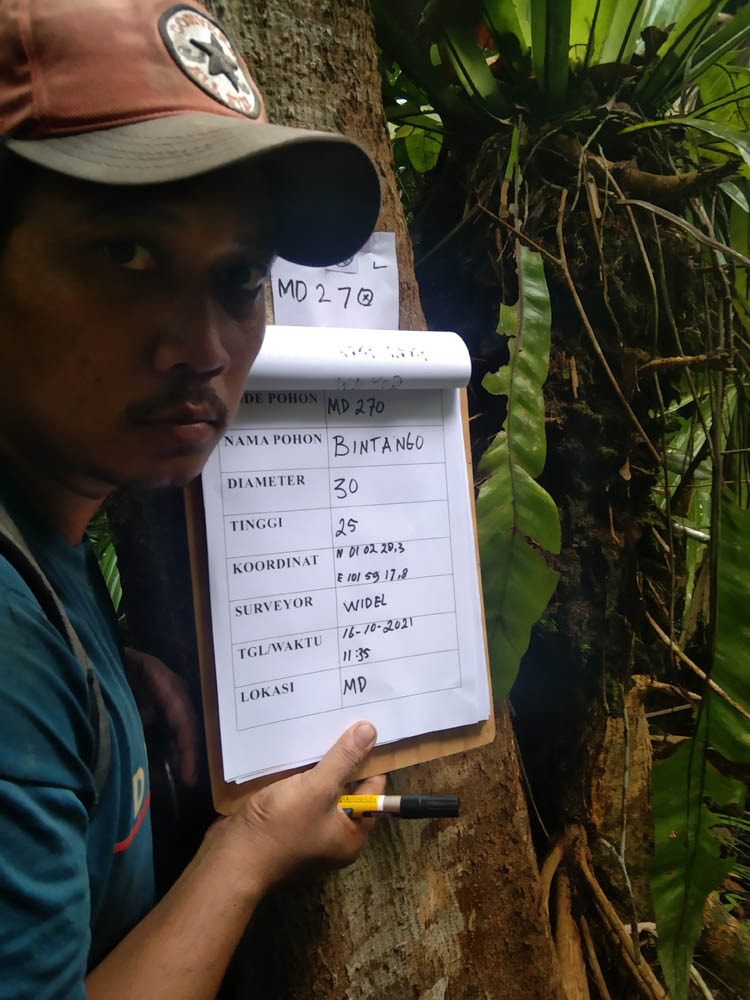 MD 270
DE POHON MD 270
NAMA POHON BINTANGO
DIAMETER 30
TINGGI 25
KOORDINAT N 01 02 28,3
E 101 59 17,8
SURVEYOR WIDEL
TGL/WAKTU 16-10-2021
11:35
LOKASI MD